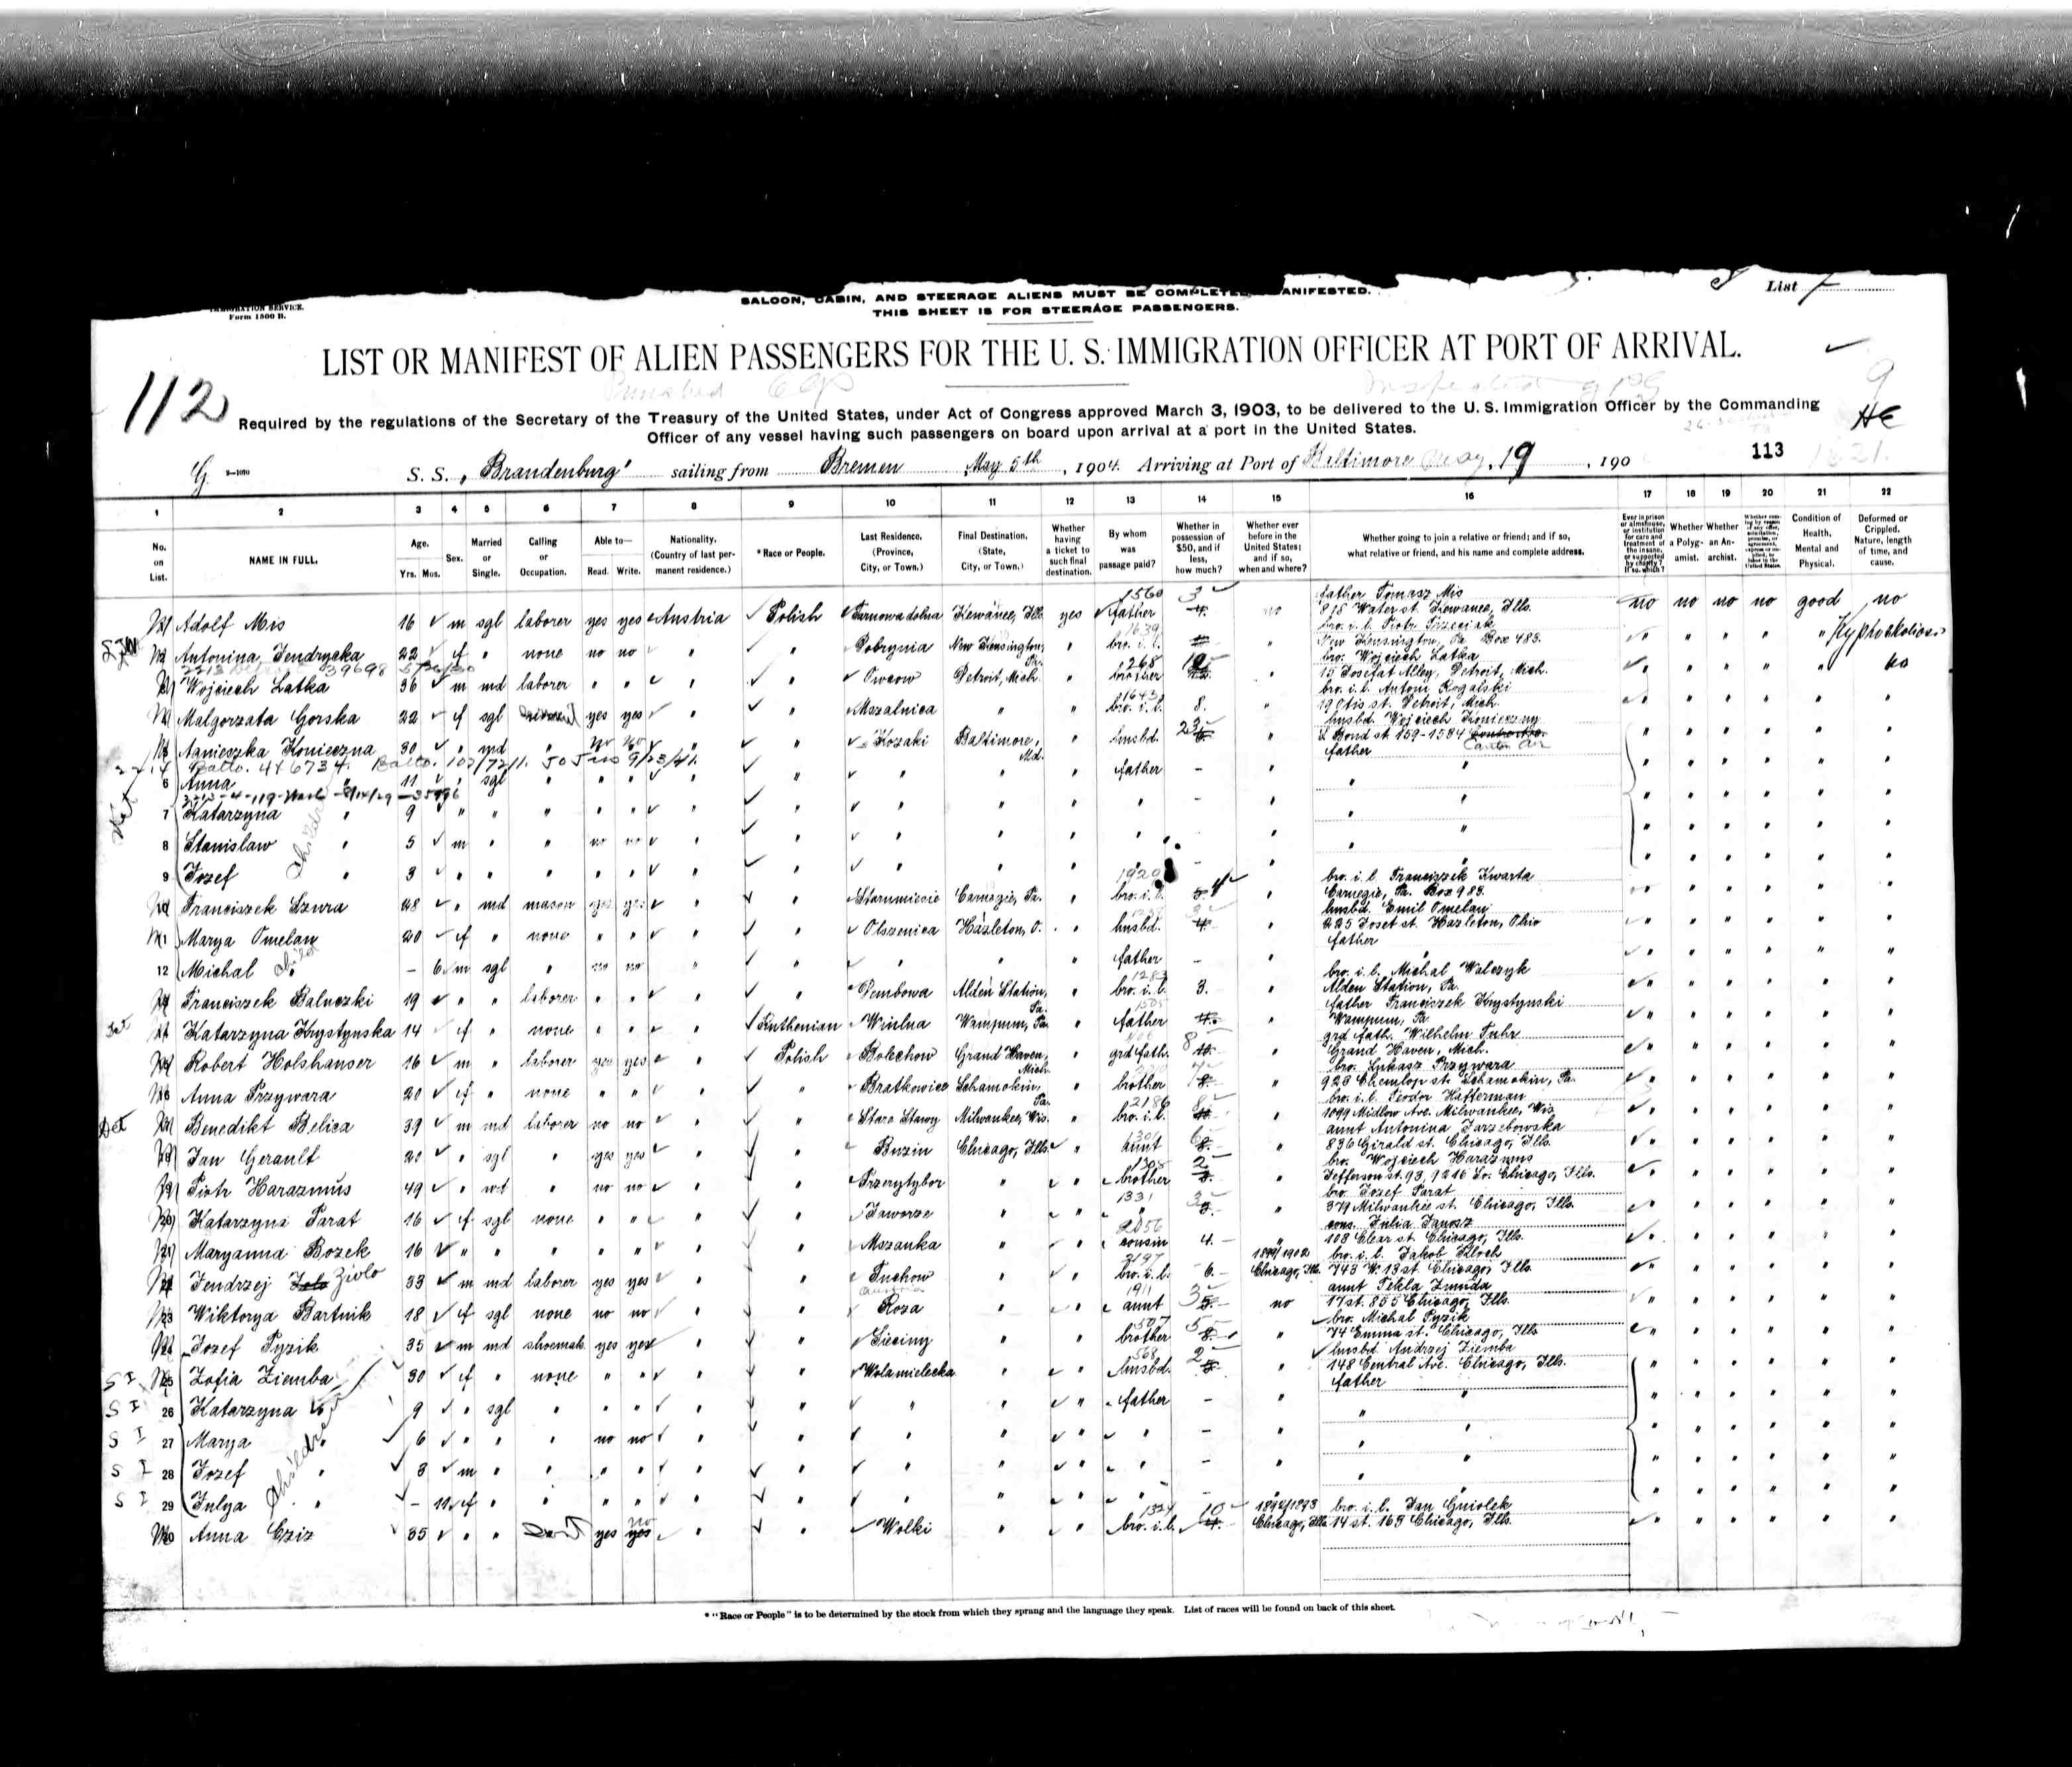 SALOON, CABIN, AND STEERAGE ALIENS MUST BE COMPLETE ANIFESTED.
THIS SHEET IS FOR STEERAGE PASSENGERS.
IMMIGRATION SERVICE.
Form 1500 B.
List 7
LIST OR MANIFEST OF ALIEN PASSENGERS FOR THE U. S. IMMIGRATION OFFICER AT PORT OF ARRIVAL.
112
9
Required by the regulations of the Secretary of the Treasury of the United States, under Act of Congress approved March 3, 1903, to be delivered to the U. S. Immigration Officer by the Commanding
Officer of any vessel having such passengers on board upon arrival at a port in the United States.
G 2-1070 S. S. "Brandenburg" sailing from Bremen May 5th, 1904. Arriving at Port of Baltimore May 19, 190 113
1 2 3 4 5 6 7 8 9 10 11 12 13 14 15 16 17 18 19 20 21 22
No. on List.
NAME IN FULL.
Age. Yrs. Mos.
Sex.
Married or Single.
Calling or Occupation.
Able to— Read. Write.
Nationality. (Country of last permanent residence.)
* Race or People.
Last Residence. (Province, City, or Town.)
Final Destination. (State, City, or Town.)
Whether having a ticket to such final destination.
By whom was passage paid?
Whether in possession of $50, and if less, how much?
Whether ever before in the United States; and if so, when and where?
Whether going to join a relative or friend; and if so, what relative or friend, and his name and complete address.
Ever in prison or almshouse, or institution for care and treatment of the insane, or supported by charity? If so, which?
Whether a Polygamist.
Whether an Anarchist.
Condition of Health, Mental and Physical.
Deformed or Crippled. Nature, length of time, and cause.
Adolf Mis 16 m sgl laborer yes yes Austria Polish Tarnowadolna Kewanee, Ills. yes 1560 father 3 no father Tomasz Mis 818 Water st. Kewanee, Ills. no no no no good no
Antonina Jendrycka 22 f " none no no " " Dobrynia New Kensington, Pa. " 1639 bro. i. l. " bro. i. l. Piotr Trzeciak New Kensington, Pa. Box 483. " " " " "
Wojciech Latka 36 m md laborer " " " " Owcow Detroit, Mich. " 1268 brother " bro. Wojciech Latka 15 Josefat Alley, Detroit, Mich. " " " " " no
Malgorzata Gorska 22 f sgl yes yes " " Mszalnica " " 1643 bro. i. l. 8. " bro. i. l. Antoni Rogalski 190 tis st. Detroit, Mich. " " " " " "
Agnieszka Konieczna 30 " md " no no " " Kozaki Baltimore, Md. " husbd. " husbd. Wojciech Konieczny S. Bond st. 859-1584 " " " " " "
6 Anna " 11 " sgl " " " " " " " " father - " father " " " " " " "
7 Katarzyna " 9 " " " " " " " " " " " - " " " " " " " " "
8 Stanislaw " 5 m " " no no " " " " " " - " " " " " " " " "
9 Jozef " 3 " " " " " " " " " " " - " " " " " " " " "
Franciszek Szura 48 " md mason yes yes " " Starumiescie Carnegie, Pa. " 1920 bro. i. l. 4 " bro. i. l. Franciszek Kwarta Carnegie, Pa. Box 983. " " " " " "
Marya Omelan 20 f " none " " " " Olszenica Hazleton, O. " husbd. " husbd. Emil Omelan 225 Joset st. Hazleton, Ohio " " " " " "
12 Michal " child - 6 m sgl " no no " " " " " father - " father " " " " " " "
Franciszek Baluczki 19 " " laborer " " " " Dembowa Alden Station, Pa. " 1283 bro. i. l. 3. " bro. i. l. Michal Walczyk Alden Station, Pa. " " " " " "
Katarzyna Krystynska 14 f " none " " " Ruthenian Wiulna Wampum, Pa. " father " father Franciszek Krystynski Wampum, Pa. " " " " " "
Robert Holshauser 16 m " laborer yes yes " Polish Bolechow Grand Haven, Mich. " grd fath. 8 " grd fath. Wilhelm Fuhr Grand Haven, Mich. " " " " " "
Anna Przywara 20 f " none " " " " Bratkowice Schamokin, Pa. " brother " bro. Lukasz Przywara 920 Chemlop st. Schamokin, Pa. " " " " " "
Det Benedikt Belica 39 m md laborer no no " " Stara Stawy Milwaukee, Wis. " 2186 bro. i. l. 8 " bro. i. l. Teodor Hafferman 1099 Midlow Ave. Milwaukee, Wis. " " " " " "
Jan Gerault 20 " sgl " yes yes " " Buzin Chicago, Ills. " aunt 6 " aunt Antonina Jarzebowska 836 Girald st. Chicago, Ills. " " " " " "
Piotr Harazmus 49 " wd " no no " " Przerytybor " " 1308 brother 2 " bro. Wojciech Harazmus Jefferson st. 93, 9216 So. Chicago, Ills. " " " " " "
Katarzyna Parat 16 f sgl none " " " " Jaworze " " 1331 " 3 " bro. Jozef Parat 379 Milwaukee st. Chicago, Ills. " " " " " "
Maryanna Bozek 16 " " " " " " " Mszanka " " 2056 cousin 4. " cous. Julia Janosz 108 Clear st. Chicago, Ills. " " " " " "
Jendrzej Ziolo 33 m md laborer yes yes " " Tuchow " " 2197 bro. i. l. 6. 1899/1902 Chicago, Ills. bro. i. l. Jakob Kloch 743 W. 13 st. Chicago, Ills. " " " " " "
23 Wiktorya Bartnik 18 f sgl none no no " " Roza " " 1911 aunt 3 no aunt Tekla Zunda 17 st. 855 Chicago, Ills. " " " " " "
Jozef Pyzik 35 m md shoemak. yes yes " " Sieciny " " 507 brother 5 " bro. Michal Pyzik 74 Emma st. Chicago, Ills. " " " " " "
S I Zofia Ziemba 30 f " none " " " " Wolamielecka " " 568 husbd. 2 " husbd. Andrzej Ziemba 148 Central Ave. Chicago, Ills. " " " " " "
S I 26 Katarzyna " 9 " sgl " " " " " " " " father - " father " " " " " " "
S I 27 Marya " 6 " " " no no " " " " " " - " " " " " " " " "
S I 28 Jozef " 3 m " " " " " " " " " " - " " " " " " " " "
S I 29 Julya " children - 11 f " " " " " " " " " " - " " " " " " " " "
30 Anna Cziz 35 " " yes no yes " " Wolki " " 1324 bro. i. l. 10 1892/1893 Chicago, Ills. bro. i. l. Jan Gniolek 14 st. 163 Chicago, Ills. " " " " " "
* "Race or People" is to be determined by the stock from which they sprang and the language they speak. List of races will be found on back of this sheet.